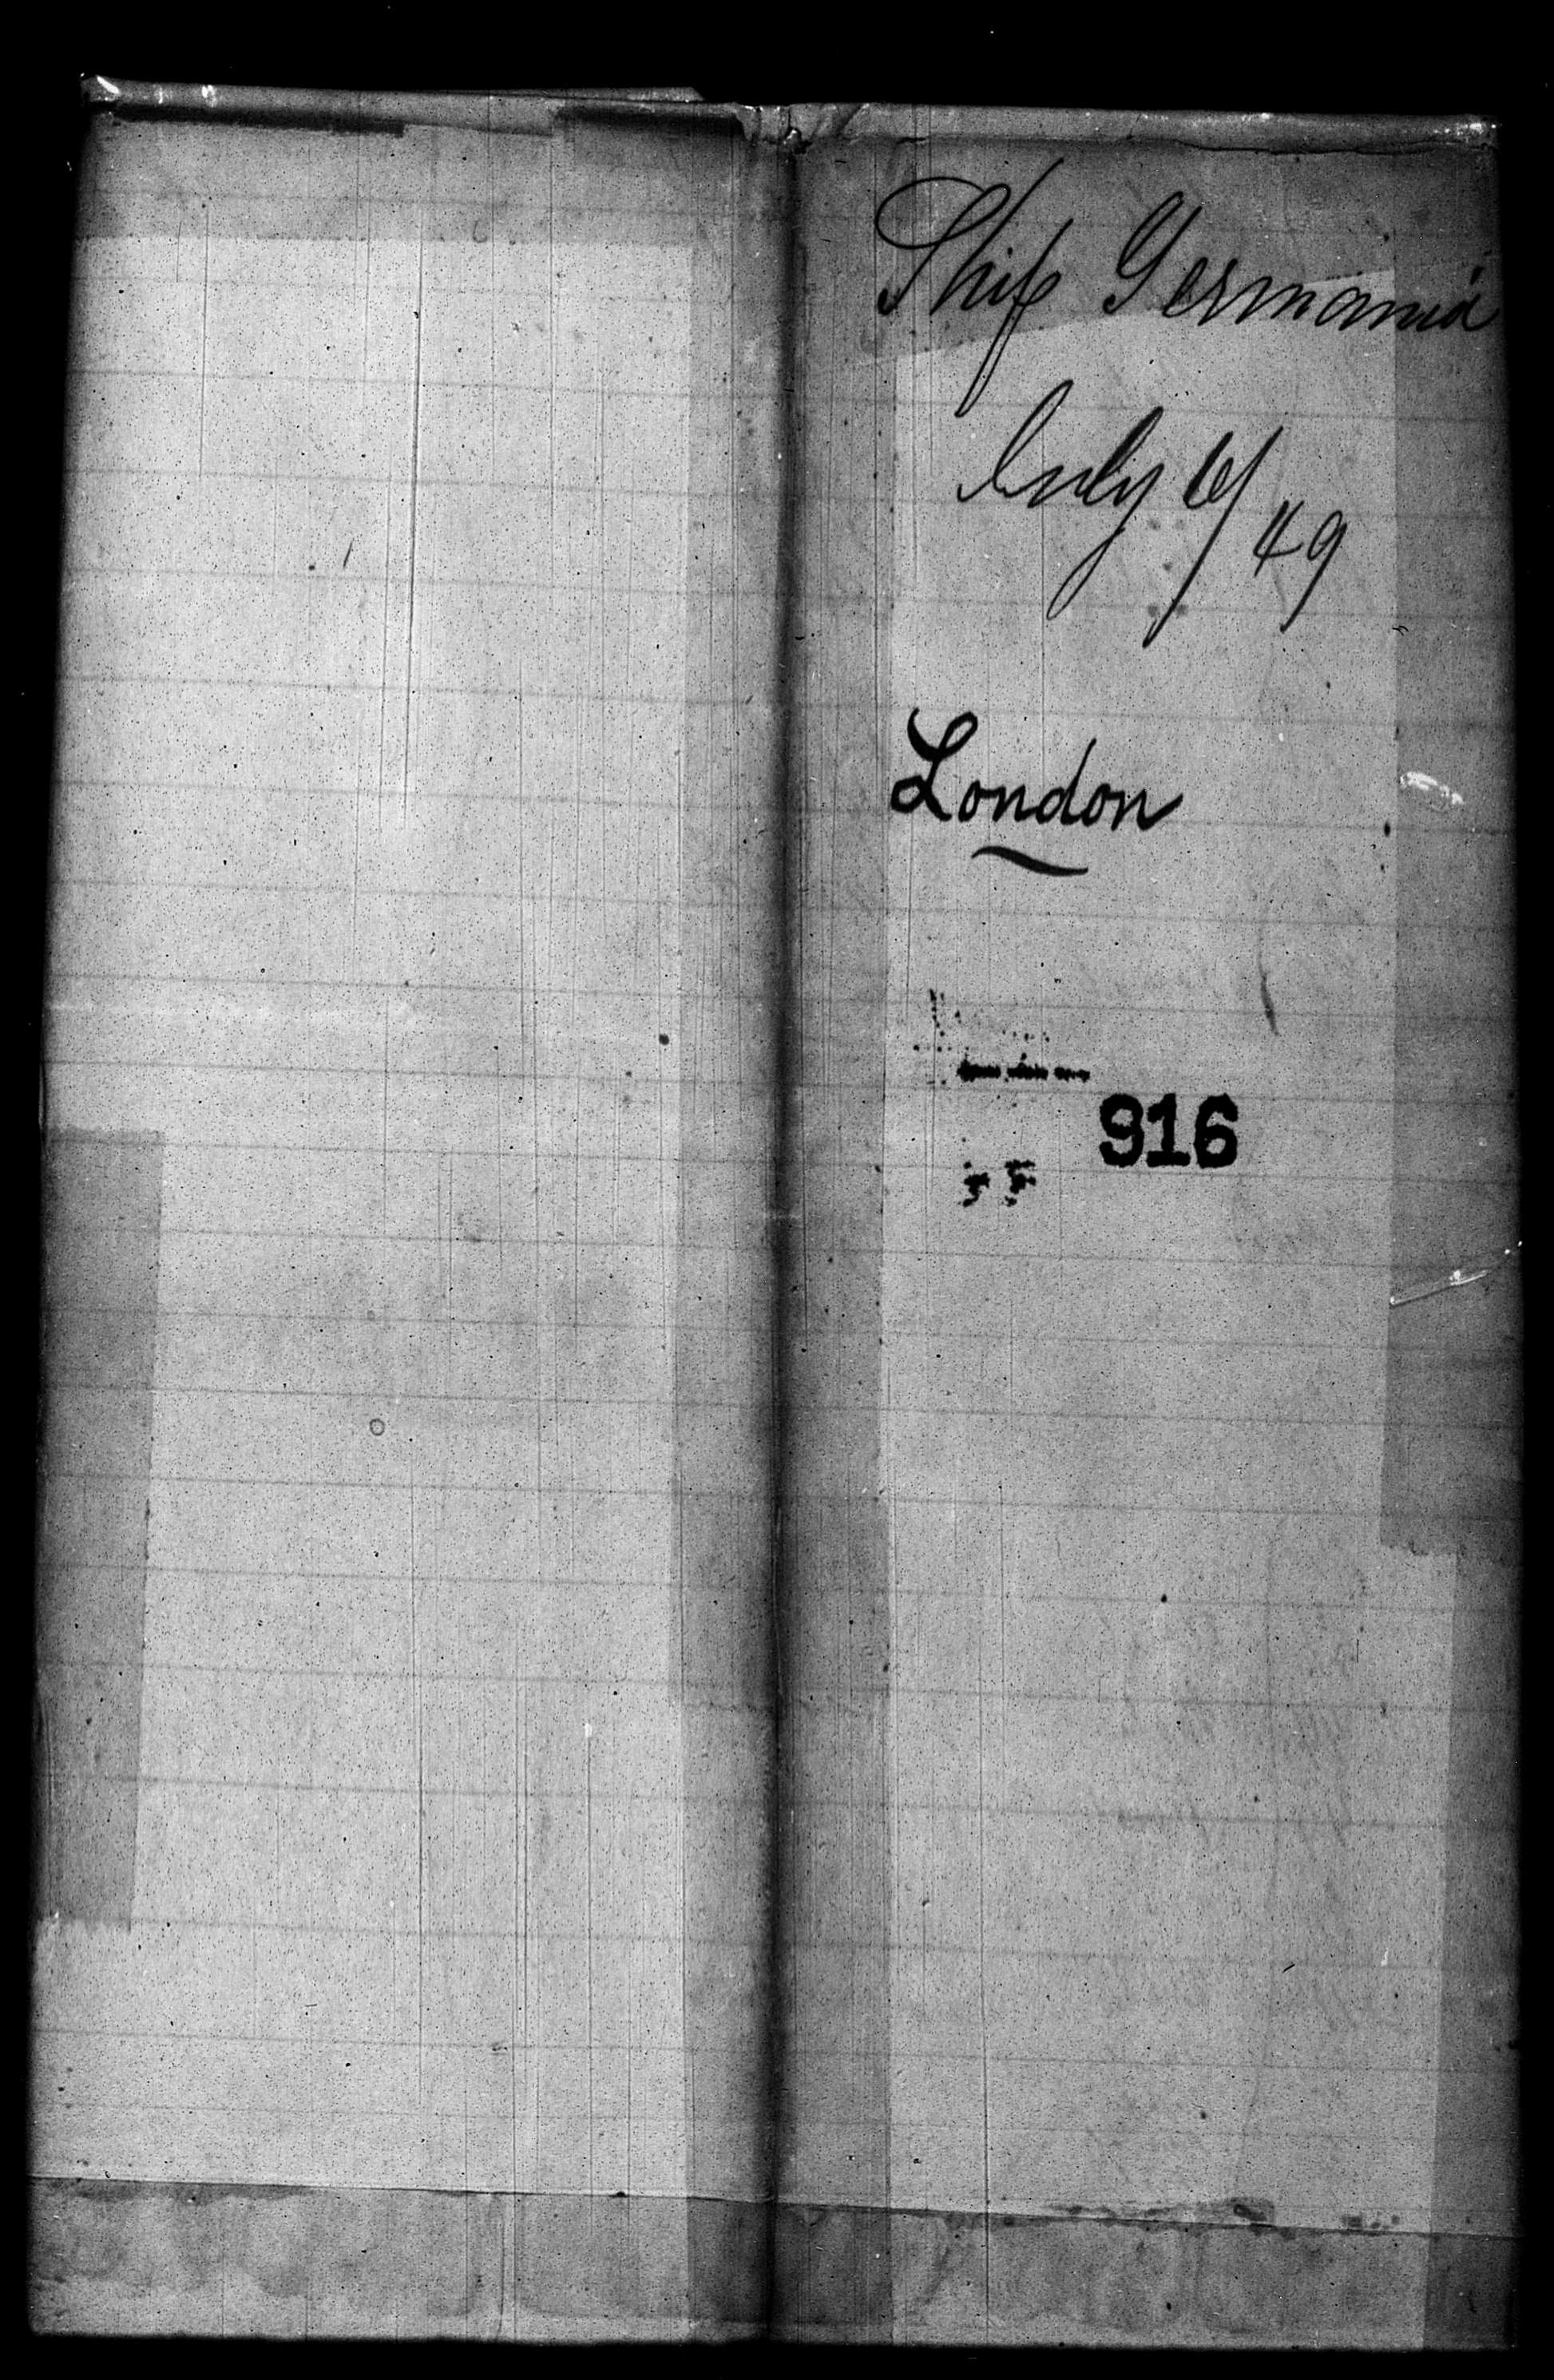 Ship Germania
July 6/49
London
916